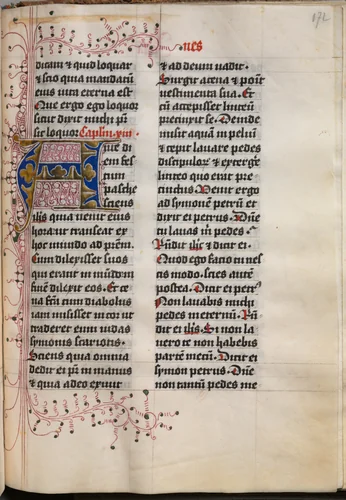 nes
172
dicam et quid loquar
et scio quia mandatū
eius vita eterna est
Que ergo ego loquor
sicut dixit michi pr̄
sic loquor Caplm xiii
Ante di
em fes
tum
pasche
sciens
ih̄s quia venit eius
hora ut transeat ex
hoc mundo ad prēm
Cum dilexisset suos
qui erant in mūdo ī
finē dilexit eos Et ce
na fc̄ta cum diabolus
iam misisset in cor ut
traderet eum iudas
symonis scariotis
Sciens quia omnia
dedit ei pr̄ in manus
et quia a deo exiuit
et ad deum vadit
Surgit a cena et ponit
vestimenta sua Et
cū accepisset linteū
precinxit se Deinde
misit aquam in peluī
et cepit lauare pedes
discipulor et exterge
linteo quo erat pre
cinctus Venit ergo
ad symonem petrū et
dixit ei petrus Dn̄e
tu lauas m̄ pedes
Rn̄dit ih̄s et dicit ei
Quod ego facio tu nes
cis modo scies autē
postea Dicit ei petr
Non lauabis michi
pedes meternū Rn̄
dit ei ih̄s Si non la
uero te non habebis
partē mecū Dicit ei
symon petrus Dn̄e
non tantū pedes me